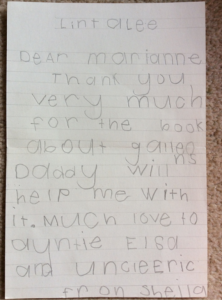 Lintalee
Dear marianne
Thank you
very much
for the book
about galleo
ns
Daddy will
help me with
it. Much love to
auntie Elsa
and uncleEric
from Sheila